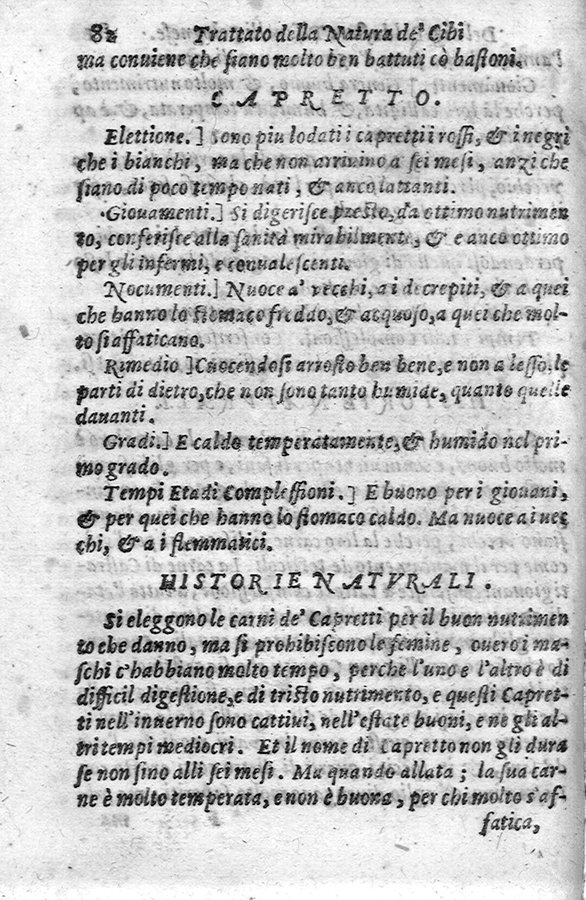 82 Trattato della Natura de' Cibi
ma conuiene che siano molto ben battuti cò bastoni.
CAPRETTO.
Elettione.] Sono piu lodati i capretti i rossi, & i negri
che i bianchi, ma che non arriuino a sei mesi, anzi che
siano di poco tempo nati, & anco lattanti.
Giouamenti.] Si digerisce presto, da ottimo nutrimen
to, conferisce alla sanità mirabilmente, & e anco ottimo
per gli infermi, e conualescenti.
Nocumenti.] Nuoce a' vecchi, a i decrepiti, & a quei
che hanno lo stomaco freddo, & acquoso, a quei che mol-
to si affaticano.
Rimedio.] Cuocendosi arrosto ben bene, e non a lesso: le
parti di dietro, che non sono tanto humide, quanto quelle
dauanti.
Gradi.] E caldo temperatamente, & humido nel pri-
mo grado.
Tempi Età di Complessioni.] E buono per i giouani,
& per quei che hanno lo stomaco caldo. Ma nuoce ai uec
chi, & a i flemmatici.
HISTORIE NATVRALI.
Si eleggono le carni de' Capretti per il buon nutrimen
to che danno, ma si prohibiscono le femine, ouero i ma-
schi c'habbiano molto tempo, perche l'uno e l'altro è di
difficil digestione, e di tristo nutrimento, e questi Capret-
ti nell'inuerno sono cattiui, nell'estate buoni, e ne gli al-
tri tempi mediocri. Et il nome di Capretto non gli dura
se non sino alli sei mesi. Ma quando allata; la sua car-
ne è molto temperata, e non è buona, per chi molto s'af-
fatica,